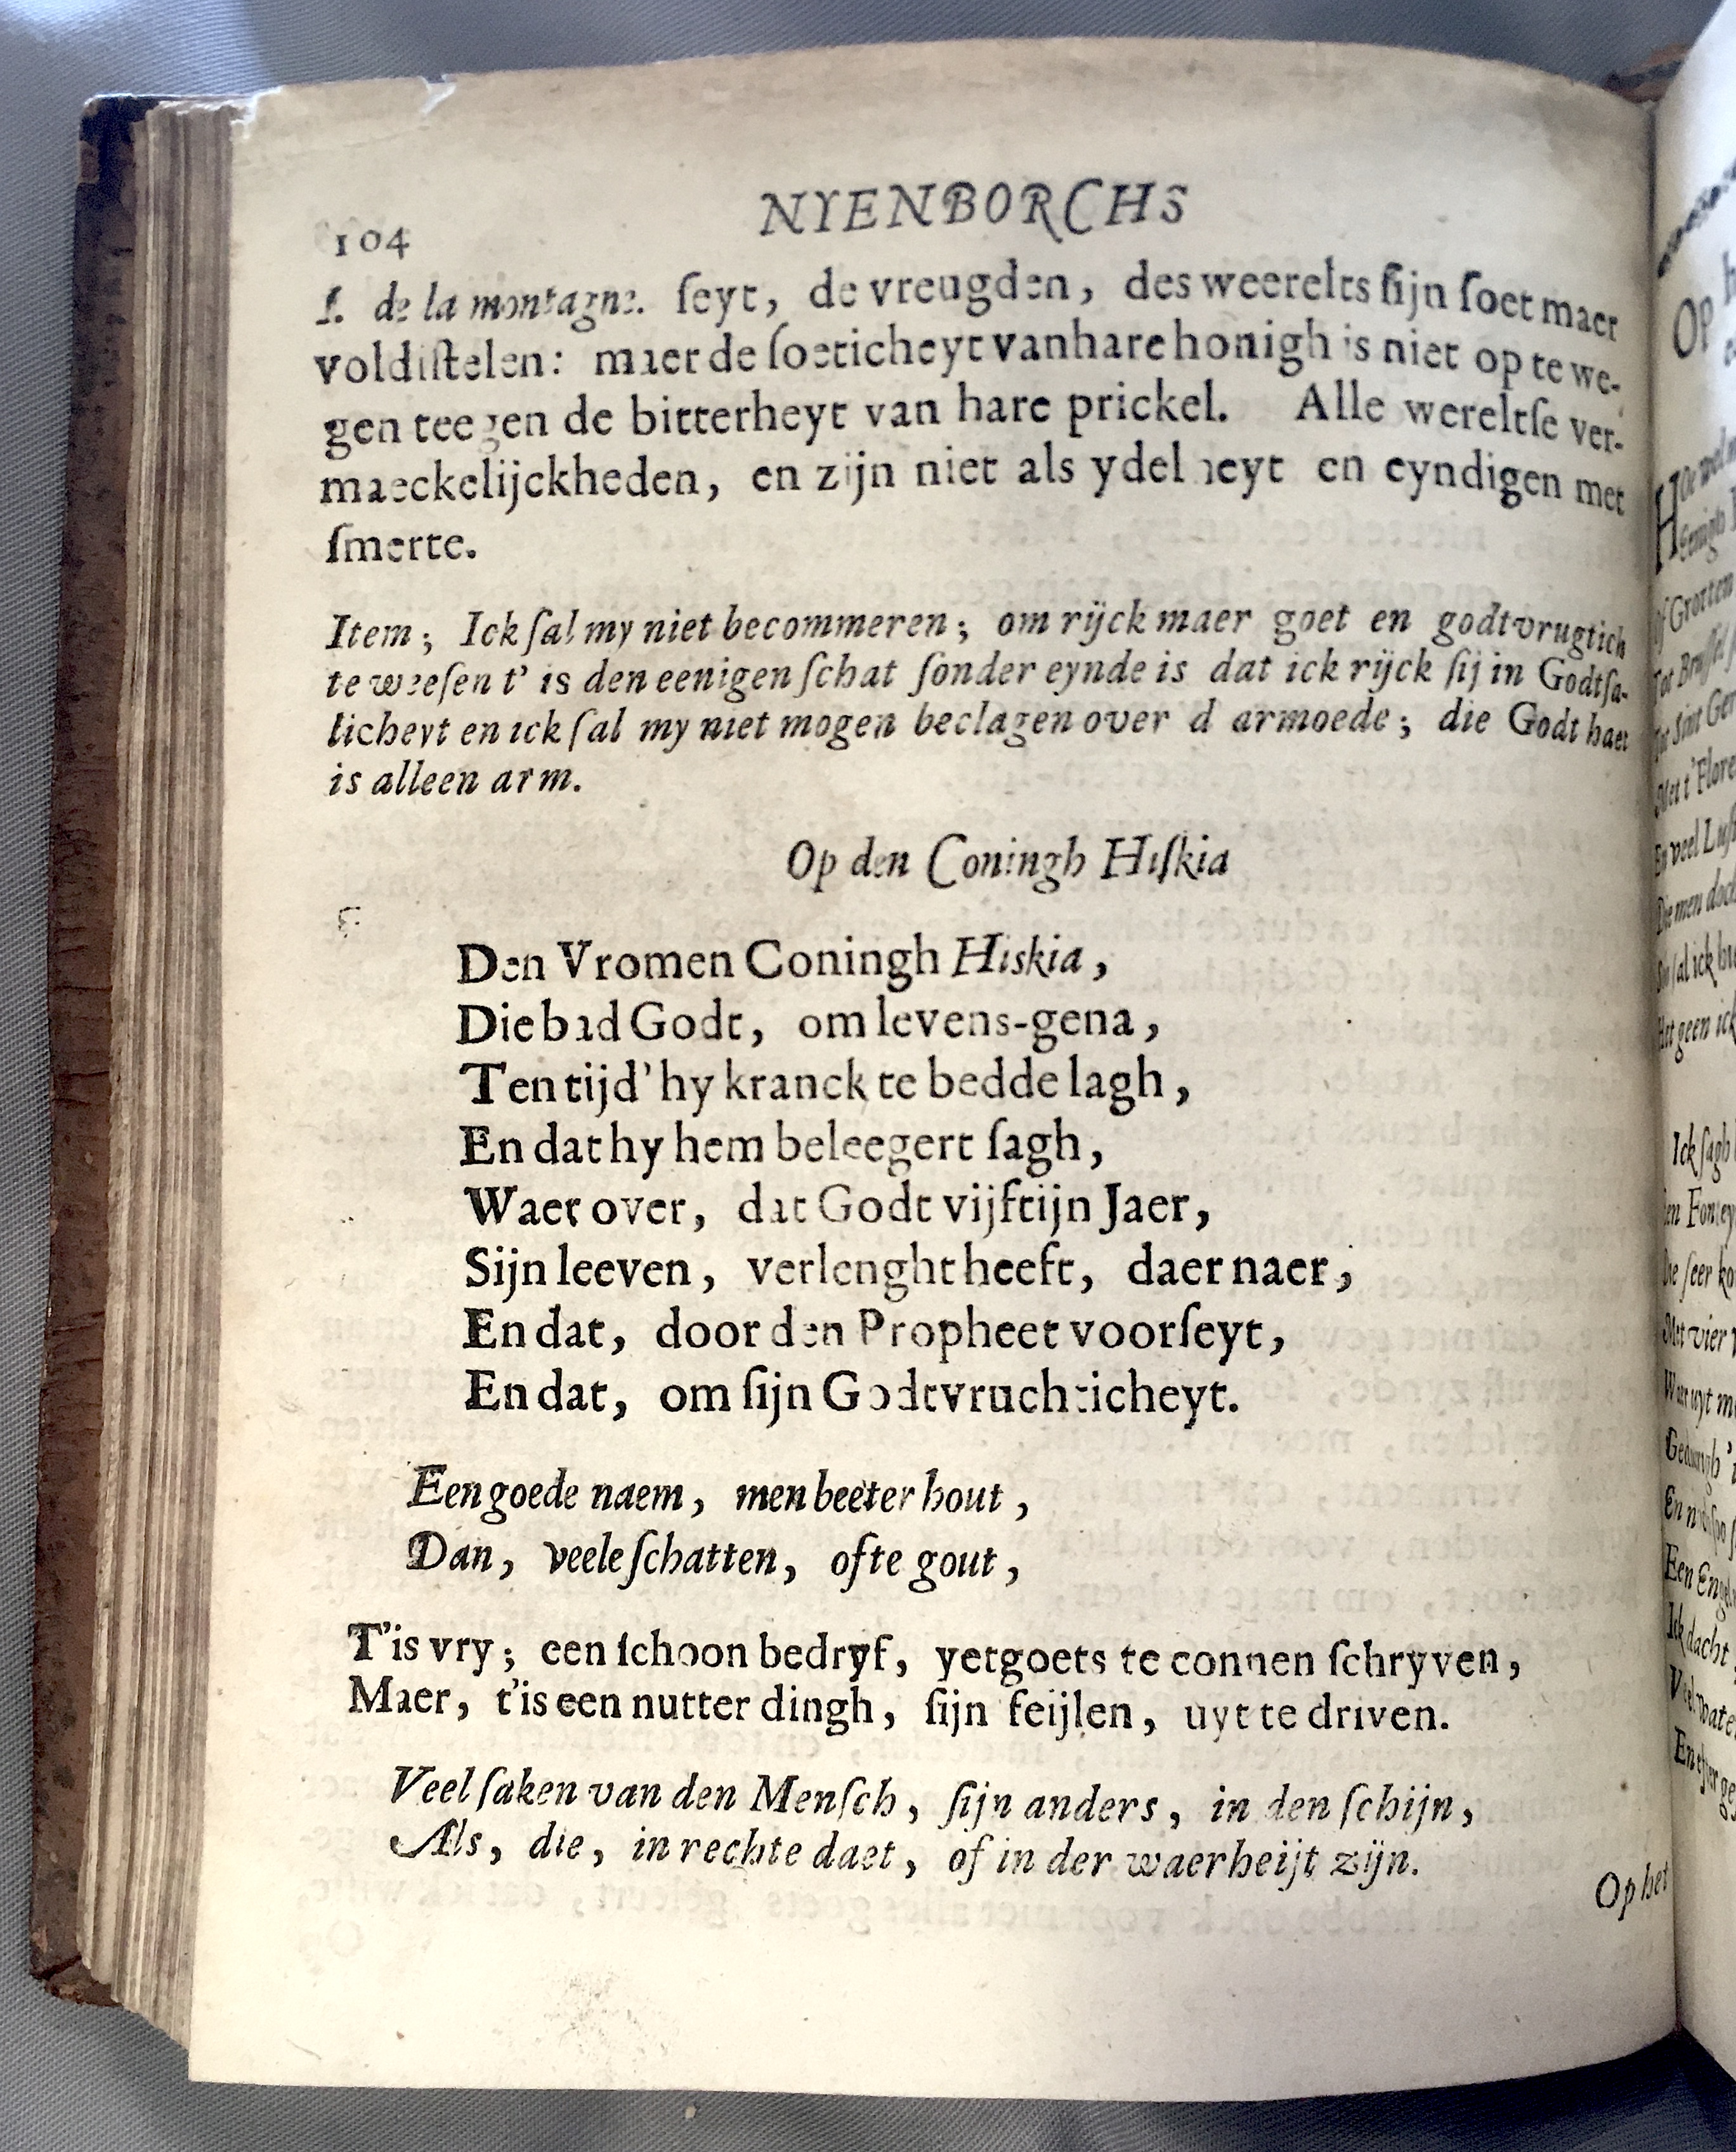 104
NYENBORCHS
I. de la montagne. ſeyt, de vreugden, des weerelts ſijn ſoet maer
vol diſtelen: maer de ſoeticheyt van hare honigh is niet op te we-
gen teegen de bitterheyt van hare prickel. Alle wereltſe ver-
maeckelijckheden, en zijn niet als ydelheyt en eyndigen met
ſmerte.
Item; Ick ſal my niet becommeren; om rijck maer goet en godtvrugtich
te weeſen t' is den eenigen ſchat ſonder eynde is dat ick rijck ſij in Godtſa-
licheyt en ick ſal my niet mogen beclagen over d armoede; die Godt haet
is alleen arm.
Op den Coningh Hiſkia
Den Vromen Coningh Hiskia,
Die bad Godt, om levens-gena,
Ten tijd' hy kranck te bedde lagh,
En dat hy hem beleegert ſagh,
Waer over, dat Godt vijftijn Jaer,
Sijn leeven, verlenght heeft, daer naer,
En dat, door den Propheet voorſeyt,
En dat, om ſijn Godtvruchticheyt.
Een goede naem, men beeter hout,
Dan, veele ſchatten, ofte gout,
T'is vry; een ſchoon bedryf, yet goets te connen ſchryven,
Maer, t'is een nutter dingh, ſijn feijlen, uyt te driven.
Veel ſaken van den Menſch, ſijn anders, in den ſchijn,
Als, die, in rechte daet, of in der waerheijt zijn.
Op het